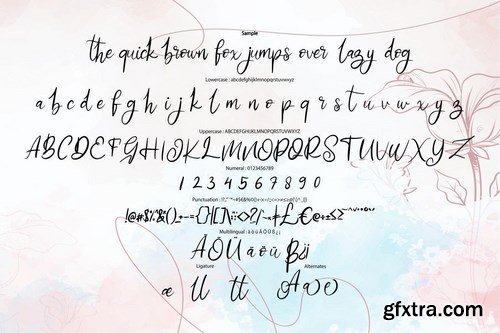 Sample
the quick brown fox jumps over lazy dog
Lowercase : abcdefghijklmnopqrstuvwxyz
a b c d e f g h i j k l m n o p q r s t u v w x y z
Uppercase : ABCDEFGHIJKLMNOPQRSTUVWXYZ
ABCDEFGHIJKLMNOPQRSTUVWXYZ
Numeral : 0123456789
1 2 3 4 5 6 7 8 9 0
Punctuation :
Multilingual : ä ö ü Ä Ö Ü ß ¿ ¡
Ä Ö Ü ä ö ü ß ¿ ¡
Ligature Alternates
æ ll tt A w e
gfxtra.com